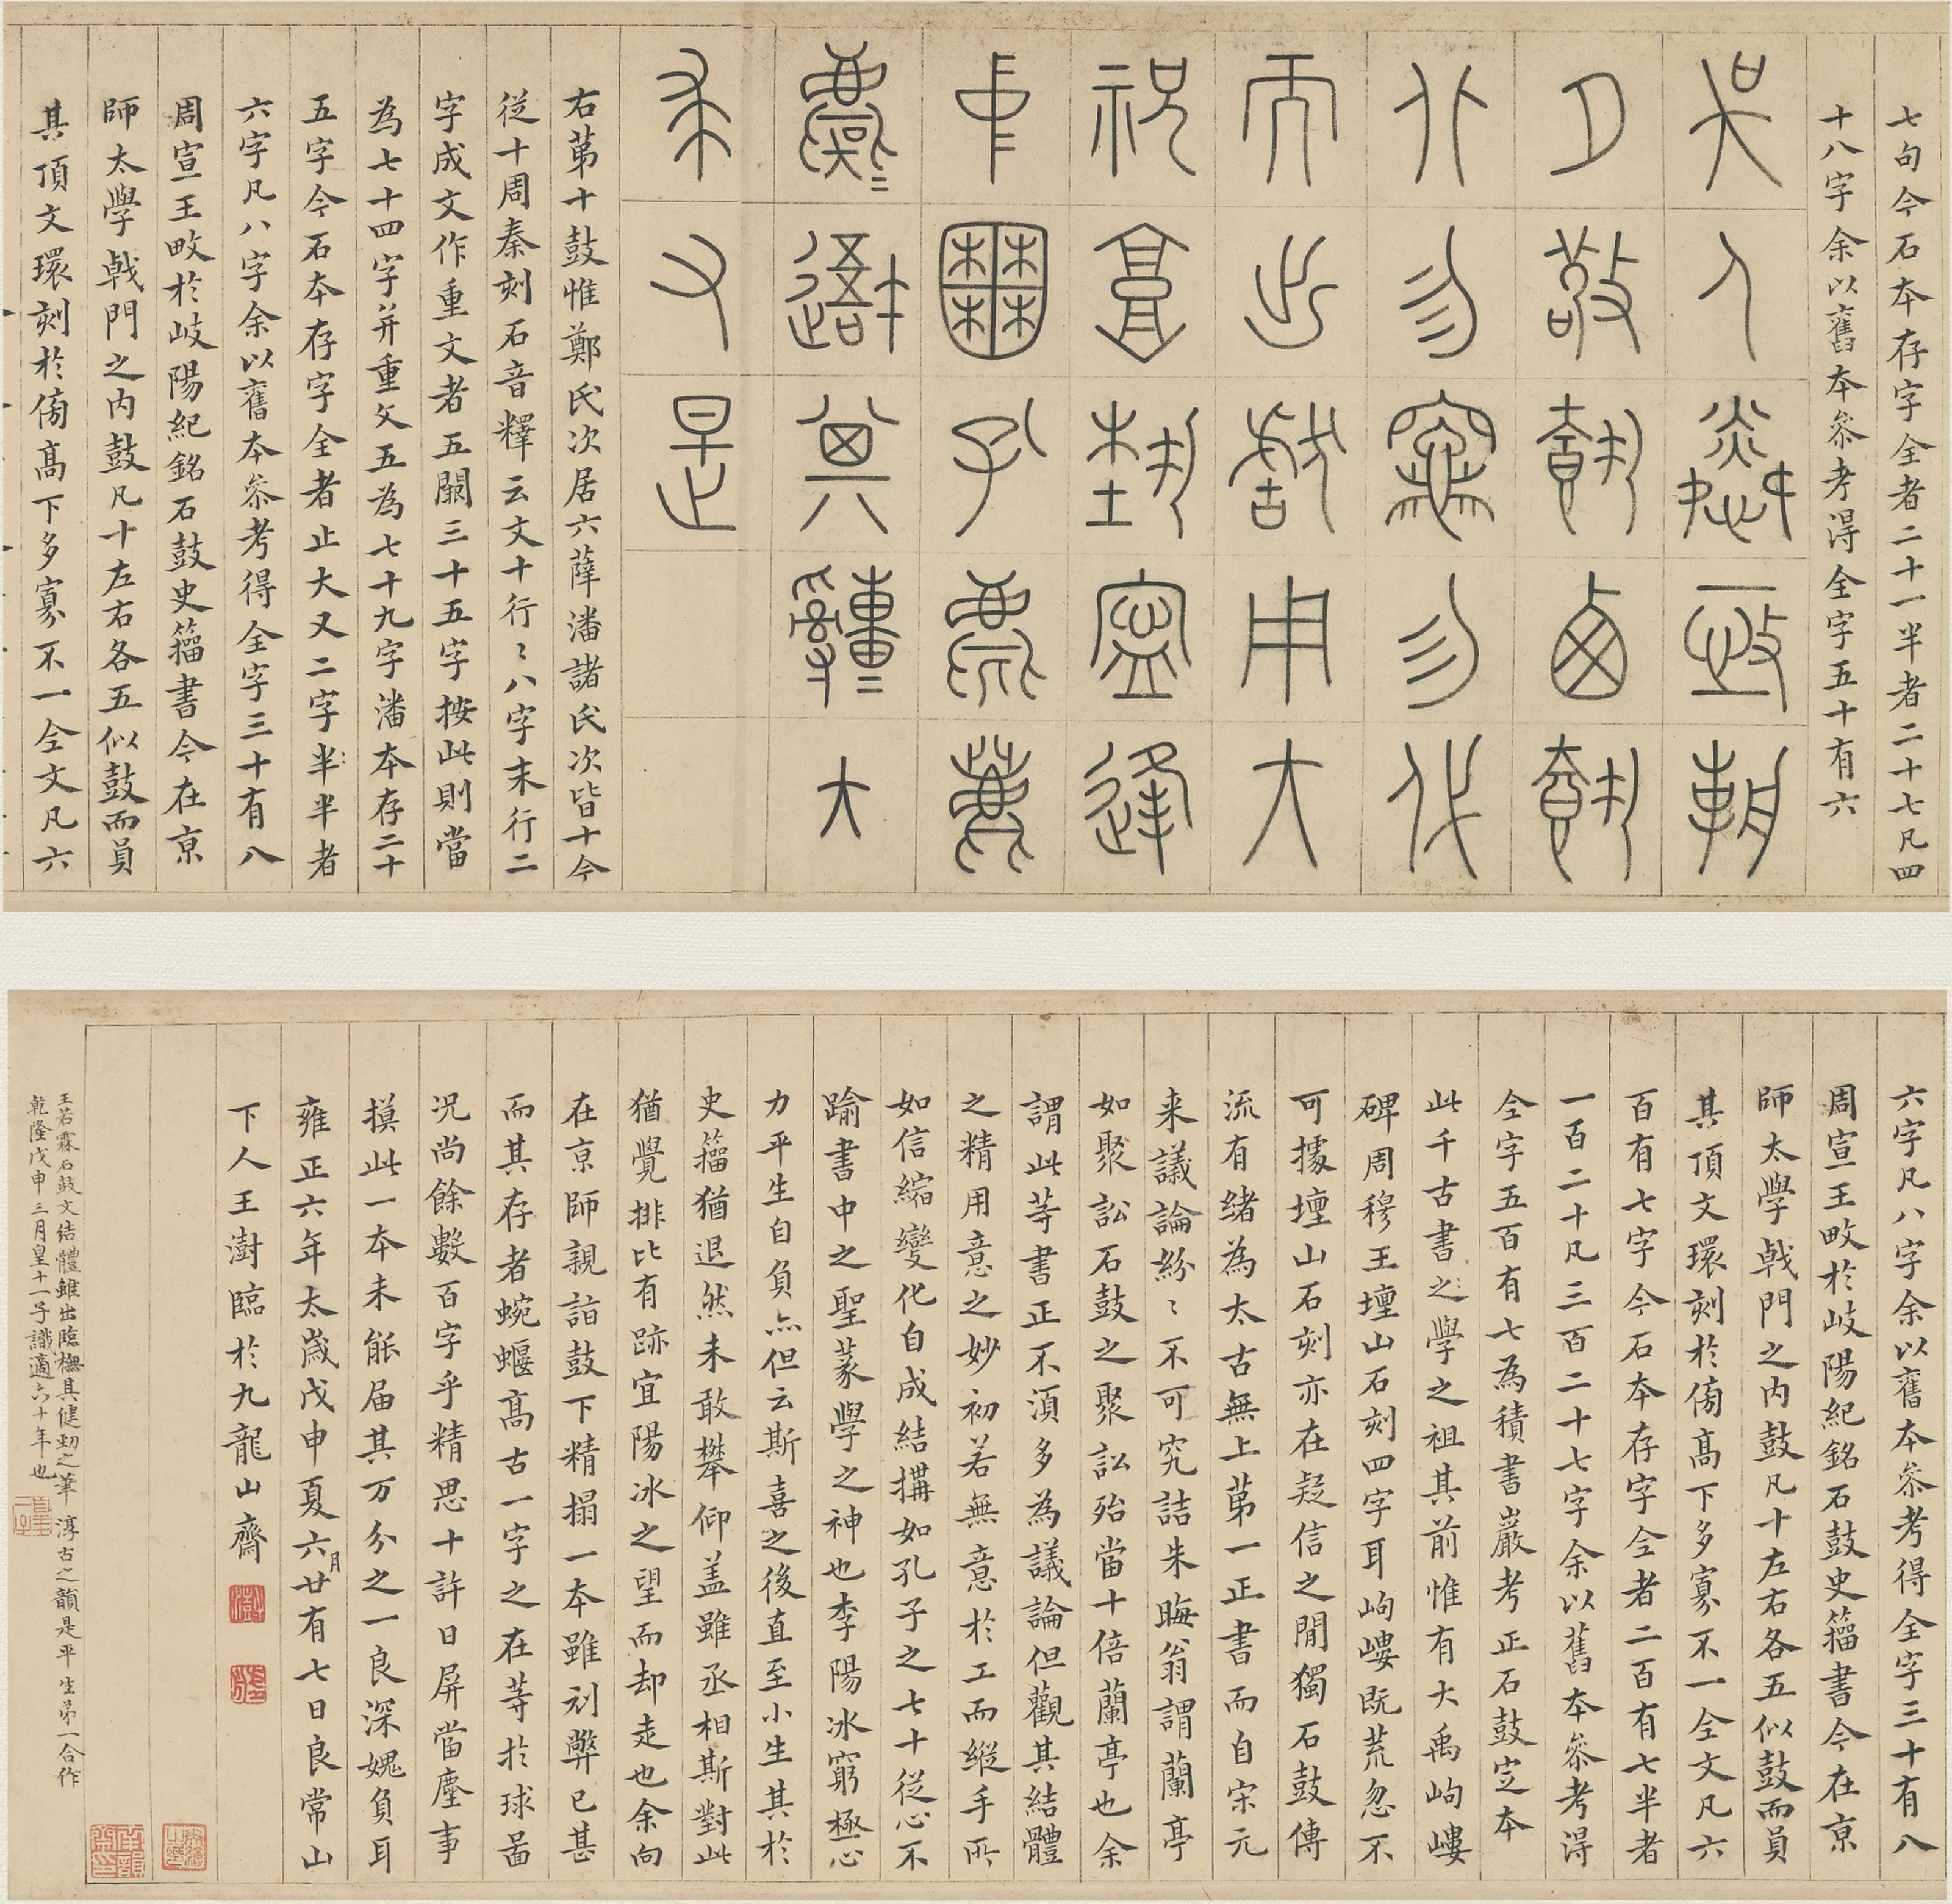 七句今石本存字全者二十一半者二十七凡四
十八字余以舊本叅考得全字五十有六
吳人憐亟朝
夕敬𩛥西𩛥
北勿竈勿代
而出獻用大
祝享埶寓逢
中囿孔鹿
其大
求又是
右苐十鼓惟鄭氏次居六薛潘諸氏次皆十今
從十周秦刻石音釋云文十行〻八字末行二
字成文作重文者五闕三十五字按此則當
為七十四字并重文五為七十九字潘本存二十
五字今石本存字全者止大又二字半〻半者
六字凡八字余以舊本叅考得全字三十有八
周宣王畋於岐陽紀銘石鼓史籀書今在京
師太學戟門之内鼓凡十左右各五似鼓而員
其頂文環刻於傍高下多寡不一仝文凡六
六字凡八字余以舊本叅考得全字三十有八
周宣王畋於岐陽紀銘石鼓史籀書今在京
師太學戟門之内鼓凡十左右各五似鼓而員
其頂文環刻於傍高下多寡不一仝文凡六
百有七字今石本存字仝者二百有七半者
一百二十凡三百二十七字余以舊本叅考得
仝字五百有七為積書巖考正石鼓定本
此千古書之〻學之祖其前惟有大禹岣嶁
碑周穆王壇山石刻四字耳岣嶁既荒忽不
可據壇山石刻亦在疑信之間獨石鼓傳
流有緒為太古無上苐一正書而自宋元
来議論紛〻不可究詰朱晦翁謂蘭亭
如聚訟石鼓之聚訟殆當十倍蘭亭也余
謂此等書正不湏多為議論但觀其結體
之精用意之妙初若無意於工而縱手所
如信縮變化自成結搆如孔子之七十從心不
踰書中之聖篆學之神也李陽冰窮極心
力平生自負亦但云斯喜之後直至小生其於
史籀猶退然未敢攀仰盖雖丞相斯對此
猶覺排比有跡宜陽冰之望而却走也余向
在京師親詣鼓下精搨一本雖刓弊已甚
而其存者蜿蝘高古一字之在等於球啚
况尚餘數百字乎精思十許日屏當塵事
摸此一本未能届其万分之一良深媿負耳
雍正六年太歲戊申夏六月廿有七日良常山
下人王澍臨於九龍山齋
王若霖石鼓文結體雖出臨橅其健勁之筆淳古之韻是平生苐一合作
乾隆戊申三月皇十一子識適六十年也